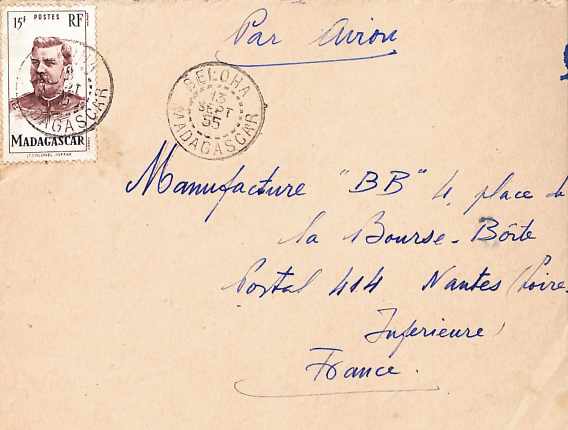 15F POSTES RF
MADAGASCAR
LT COLONEL JOFFRE
MADAGASCAR
BELOHA
13
SEPT
55
MADAGASCAR
Par Avion
Manufacture "BB" 4, place de
la Bourse - Boîte
Postal 414 Nantes (Loire-
Inferieure)
France.